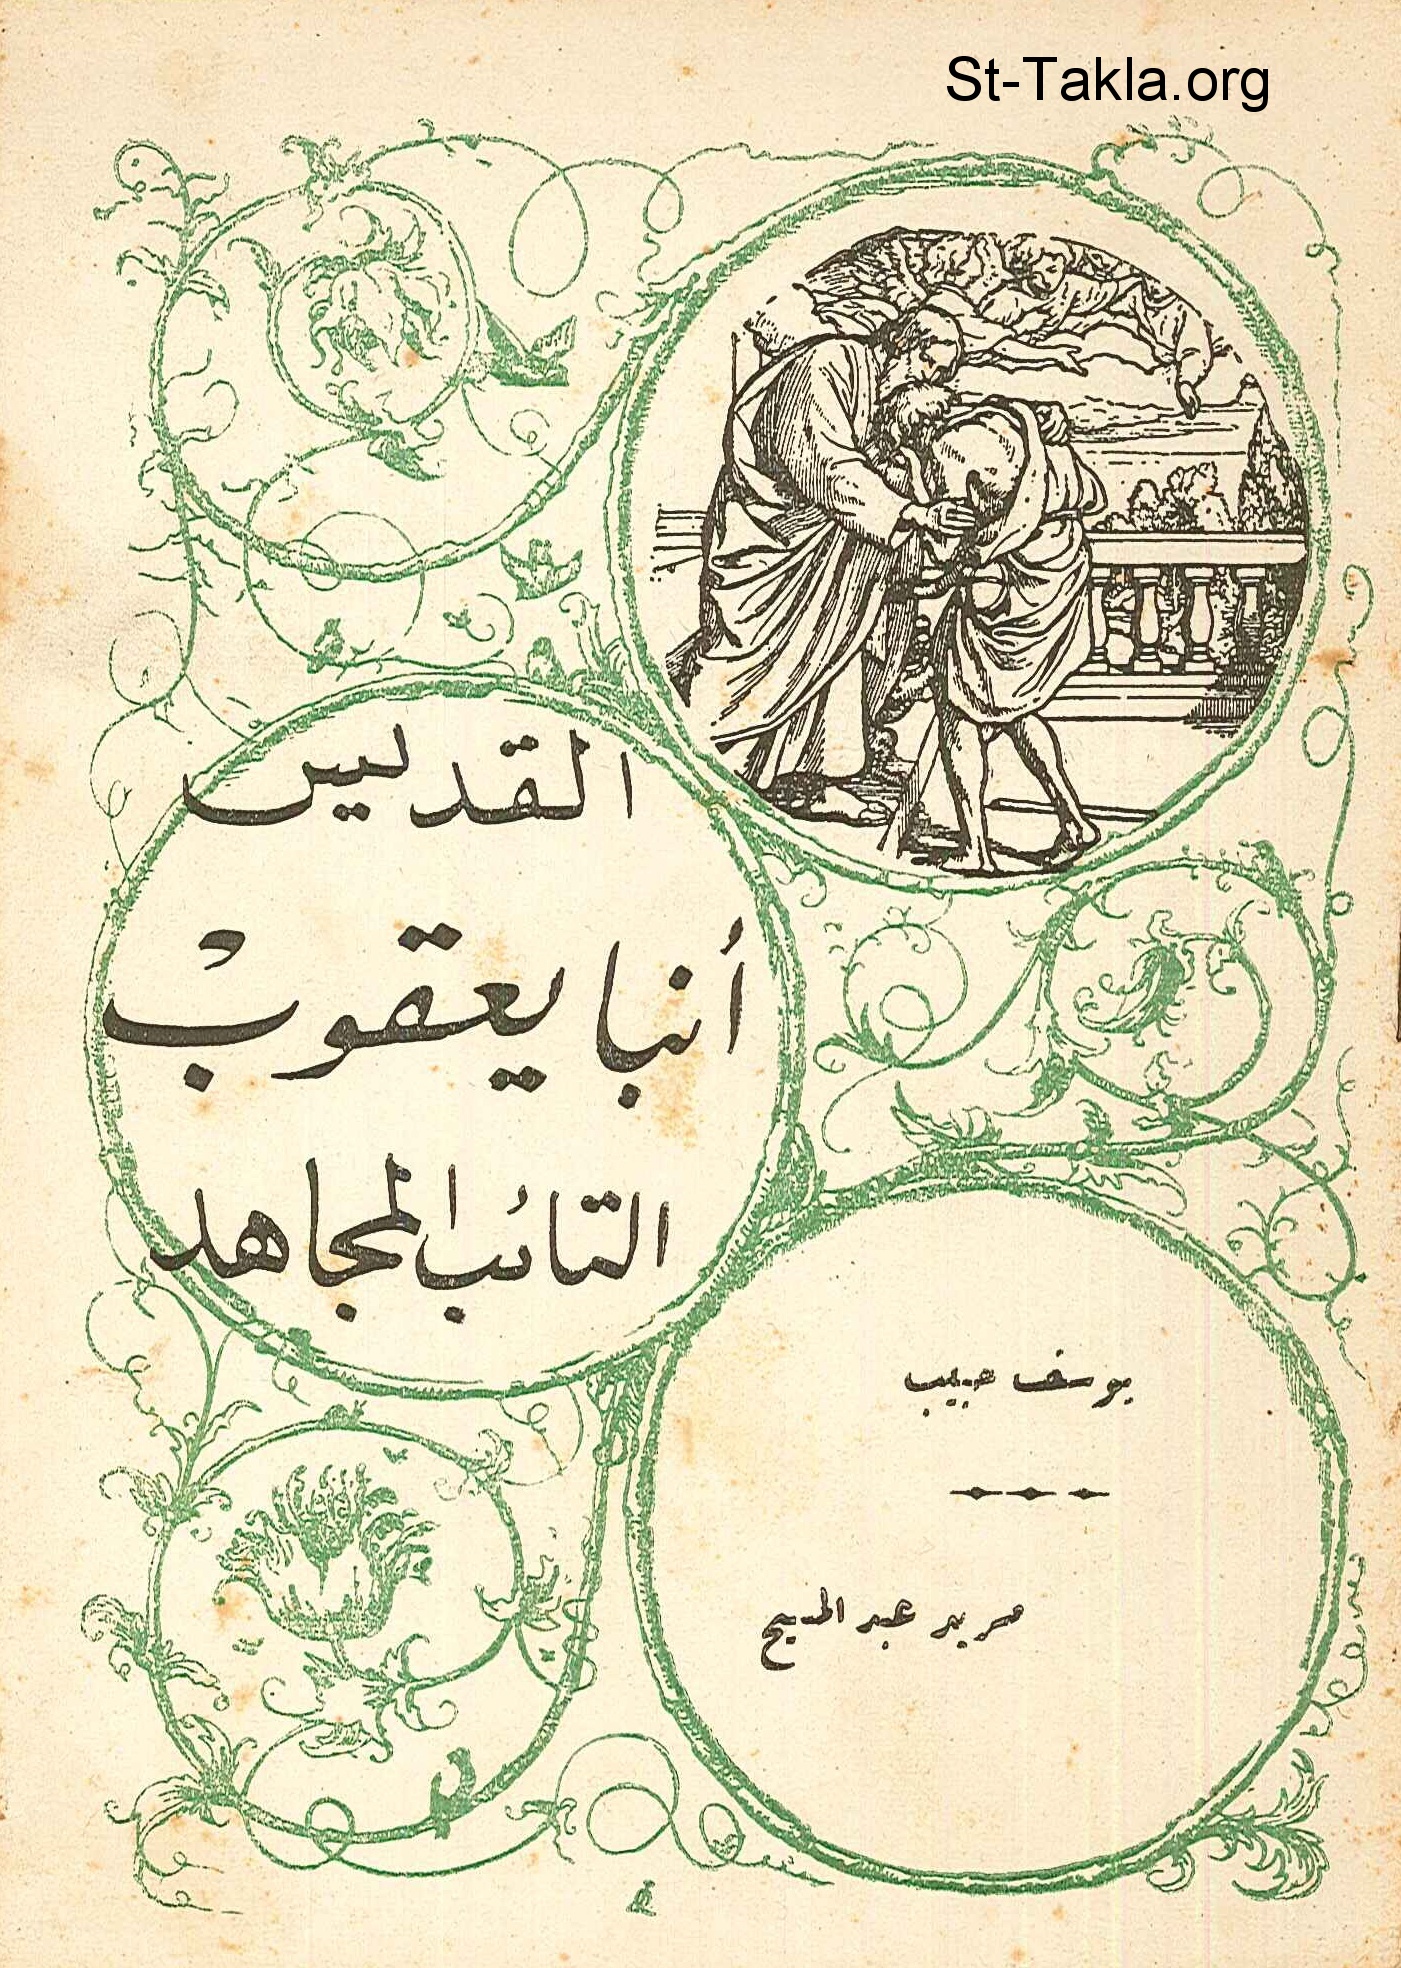 St-Takla.org
القديس
أنبا يعقوب
التائب المجاهد
يوسف حبيب
مريد عبد المسيح